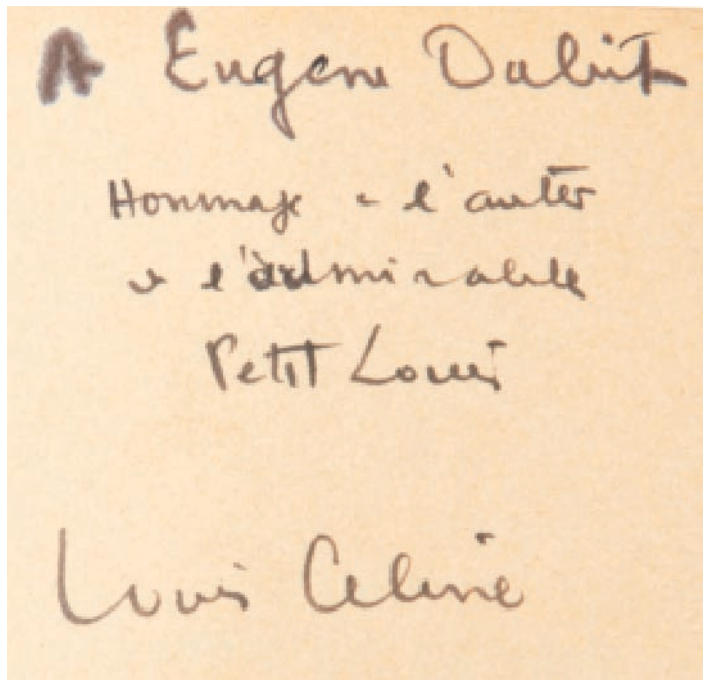 A Eugene Dabit
Hommage à l'auteur
de l'admirable
Petit Louis
Louis Celine